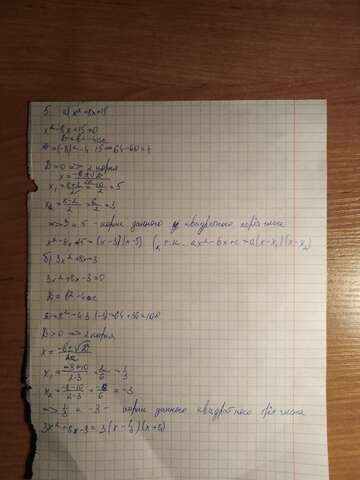 5. а) x² - 8x + 15
x² - 8x + 15 = 0
D = b² - 4ac
D = (-8)² - 4·15 = 64 - 60 = 4
D > 0 => 2 корня
x = -b ± √D / 2a
x₁ = 8+2 / 2 = 10 / 2 = 5
x₂ = 8-2 / 2 = 6 / 2 = 3
=> 3 и 5 - корни данного квадратного трёхчлена
x² - 8x + 15 = (x-3)(x-5) (т.к. ax² - bx + c = a(x-x₁)(x-x₂)
б) 3x² + 8x - 3
3x² + 8x - 3 = 0
D = b² - 4ac
D = 8² - 4·3·(-3) = 64 + 36 = 100
D > 0 => 2 корня
x = -b ± √D / 2a
x₁ = -8+10 / 2·3 = 2 / 6 = 1/3
x₂ = -8-10 / 2·3 = -18 / 6 = -3
=> 1/3 и -3 - корни данного квадратного трёхчлена
3x² + 8x - 3 = 3(x - 1/3)(x+3)